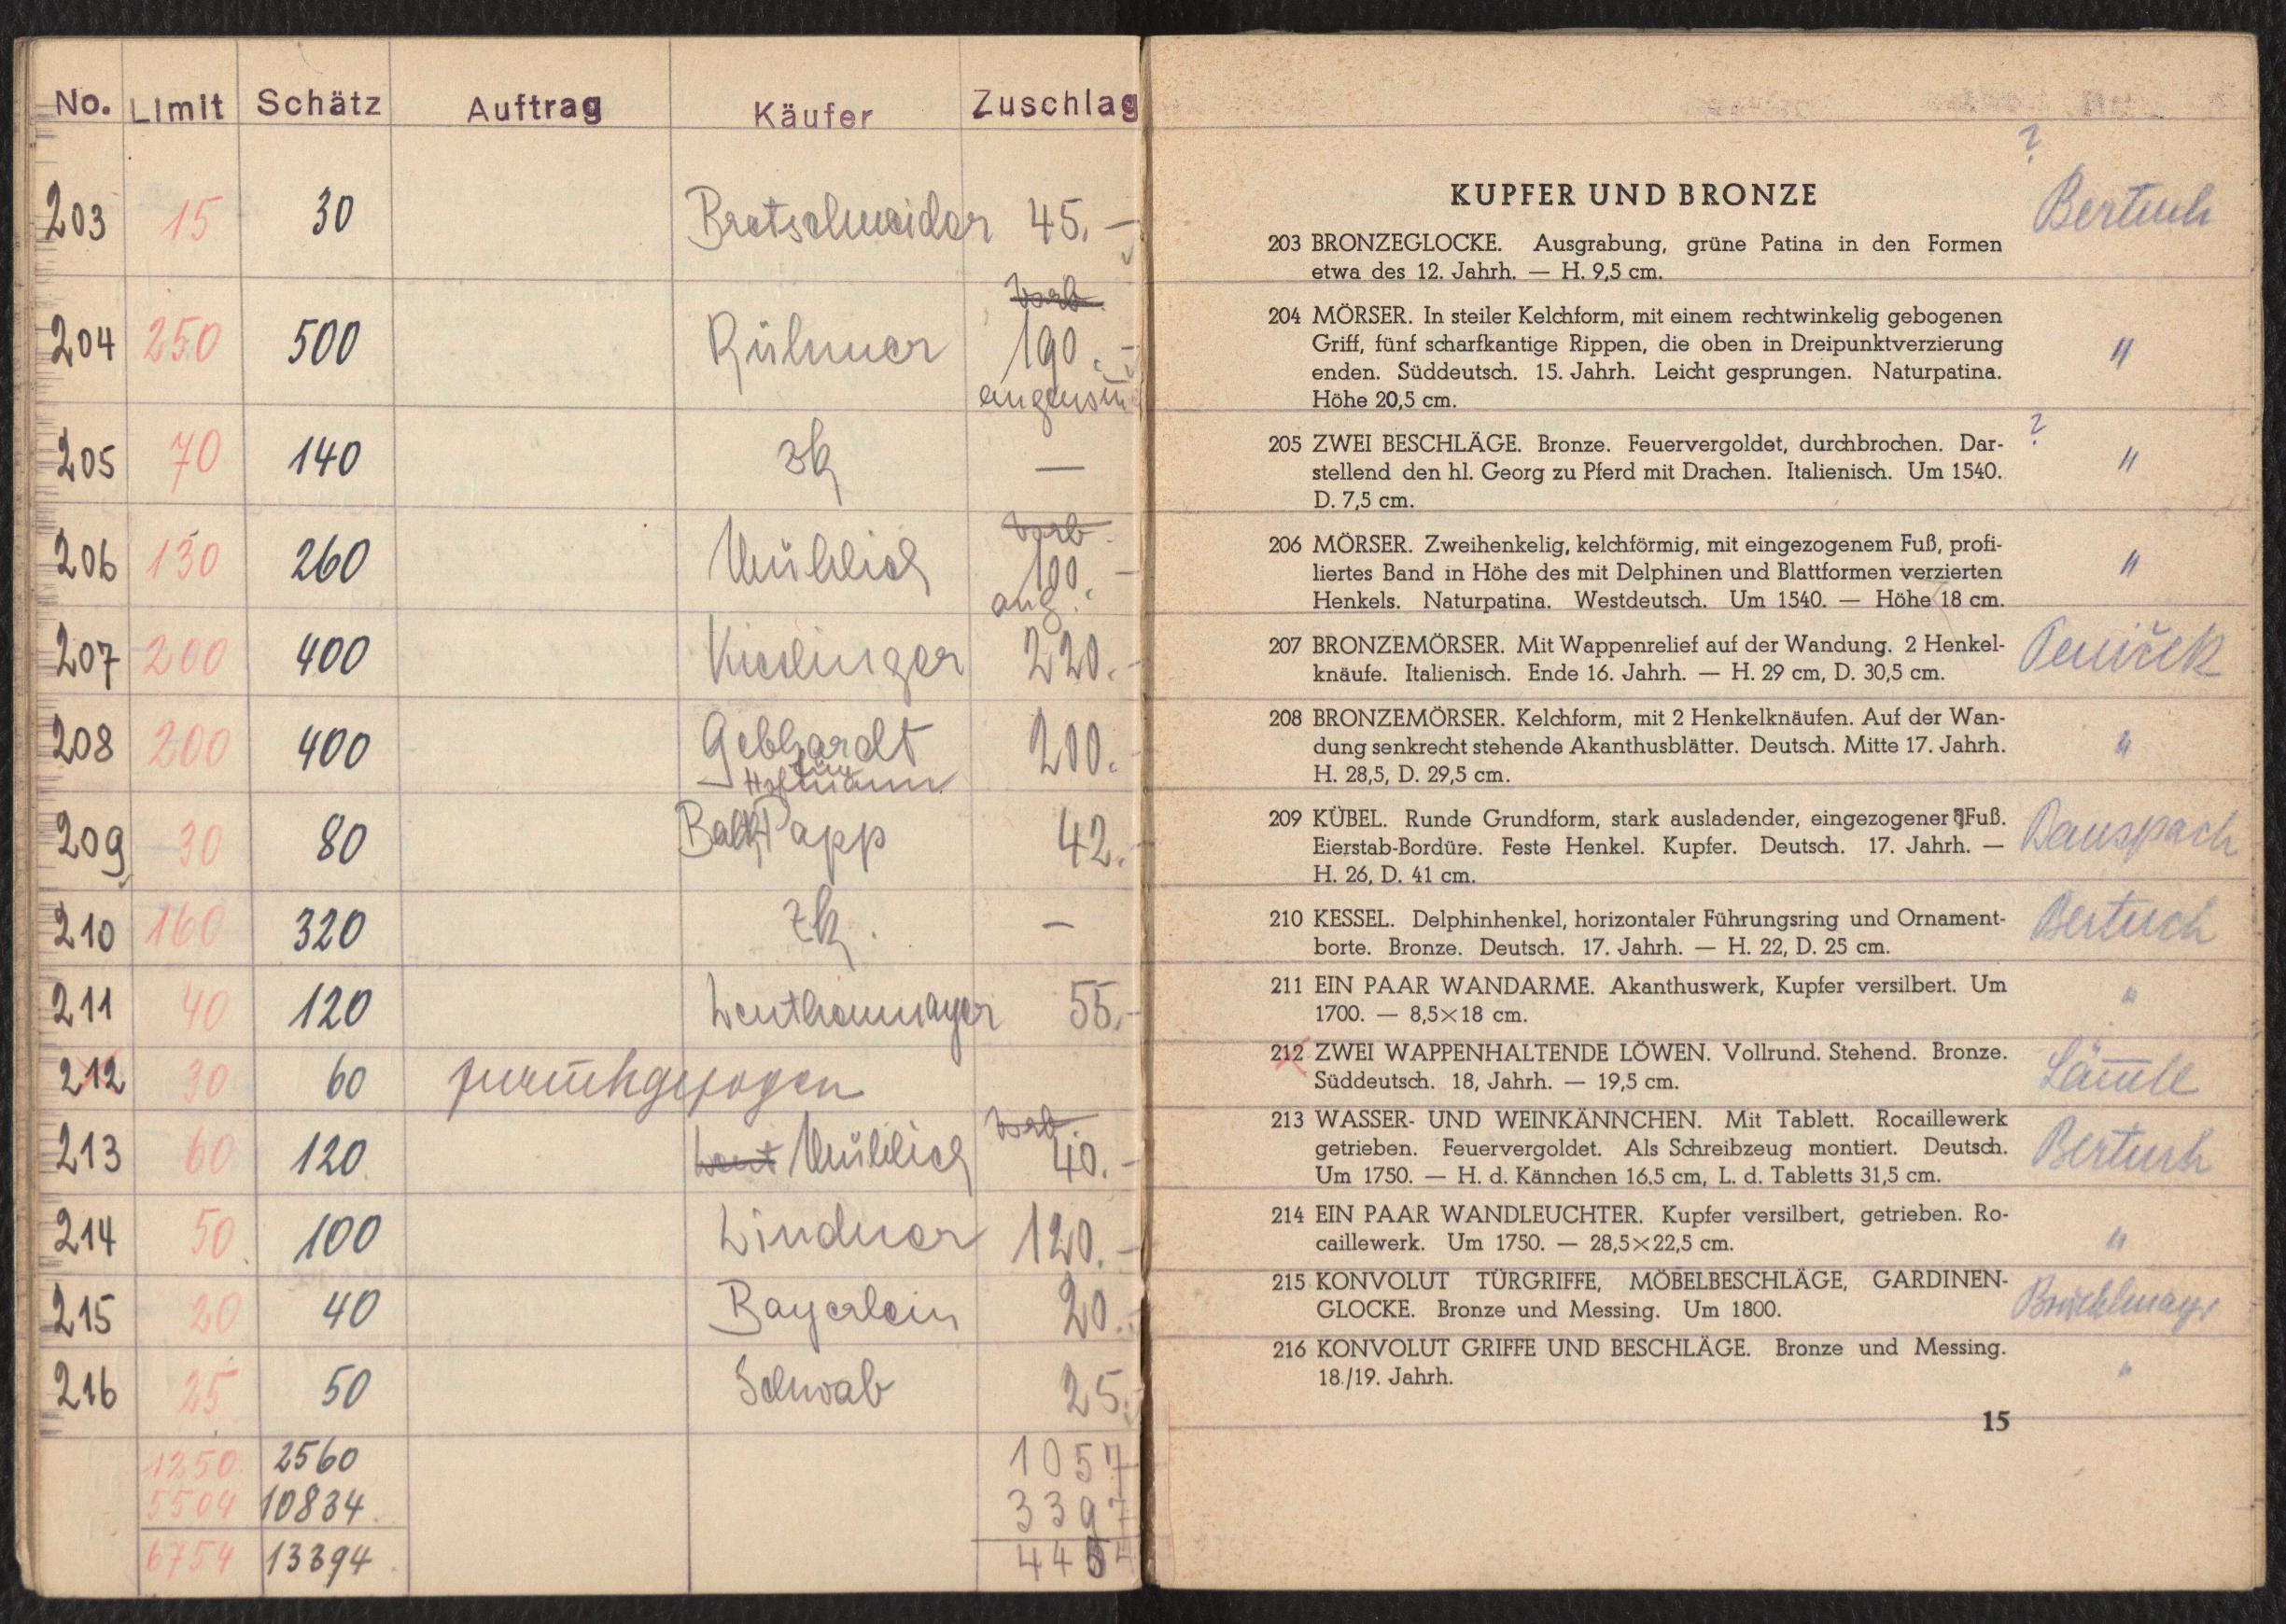 No. Limit Schätz Auftrag Käufer Zuschlag
203 15 30 Bretschneider 45.–
Vorb.
204 250 500 Rülmer 190.–
angenomm
205 70 140 zk —
Vorb.
206 130 260 Mühlich 100.–
ang.
207 200 400 Kieslinger 220.–
208 200 400 Gebhardt 200.–
für
Hofmann
209 30 80 Papp 42.–
210 160 320 zk. –
211 40 120 Leutheumayer 55.–
212 30 60 zurückgezogen
Vorb.
213 60 120 Leut Mühlich 40.–
214 50 100 Lindner 120.–
215 20 40 Bayerlein 20.–
216 25 50 Schwab 25.–
1250 2560 1057
5504 10834 3397
6754 13394 4454
?
KUPFER UND BRONZE
Bertuch
203 BRONZEGLOCKE. Ausgrabung, grüne Patina in den Formen
etwa des 12. Jahrh. — H. 9,5 cm.
204 MÖRSER. In steiler Kelchform, mit einem rechtwinkelig gebogenen
Griff, fünf scharfkantige Rippen, die oben in Dreipunktverzierung "
enden. Süddeutsch. 15. Jahrh. Leicht gesprungen. Naturpatina.
Höhe 20,5 cm.
205 ZWEI BESCHLÄGE. Bronze. Feuervergoldet, durchbrochen. Dar- ?
stellend den hl. Georg zu Pferd mit Drachen. Italienisch. Um 1540. "
D. 7,5 cm.
206 MÖRSER. Zweihenkelig, kelchförmig, mit eingezogenem Fuß, profi-
liertes Band in Höhe des mit Delphinen und Blattformen verzierten "
Henkels. Naturpatina. Westdeutsch. Um 1540. — Höhe 18 cm.
207 BRONZEMÖRSER. Mit Wappenrelief auf der Wandung. 2 Henkel- Peniček
knäufe. Italienisch. Ende 16. Jahrh. — H. 29 cm, D. 30,5 cm.
208 BRONZEMÖRSER. Kelchform, mit 2 Henkelknäufen. Auf der Wan-
dung senkrecht stehende Akanthusblätter. Deutsch. Mitte 17. Jahrh. "
H. 28,5, D. 29,5 cm.
209 KÜBEL. Runde Grundform, stark ausladender, eingezogener Fuß. Danspach
Eierstab-Bordüre. Feste Henkel. Kupfer. Deutsch. 17. Jahrh. —
H. 26, D. 41 cm.
210 KESSEL. Delphinhenkel, horizontaler Führungsring und Ornament- Bertuch
borte. Bronze. Deutsch. 17. Jahrh. — H. 22, D. 25 cm.
211 EIN PAAR WANDARME. Akanthuswerk, Kupfer versilbert. Um "
1700. — 8,5×18 cm.
212 ZWEI WAPPENHALTENDE LÖWEN. Vollrund. Stehend. Bronze. Läm̅le
Süddeutsch. 18, Jahrh. — 19,5 cm.
213 WASSER- UND WEINKÄNNCHEN. Mit Tablett. Rocaillewerk
getrieben. Feuervergoldet. Als Schreibzeug montiert. Deutsch. Bertuch
Um 1750. — H. d. Kännchen 16.5 cm, L. d. Tabletts 31,5 cm.
214 EIN PAAR WANDLEUCHTER. Kupfer versilbert, getrieben. Ro-
caillewerk. Um 1750. — 28,5×22,5 cm. "
215 KONVOLUT TÜRGRIFFE, MÖBELBESCHLÄGE, GARDINEN-
GLOCKE. Bronze und Messing. Um 1800.
216 KONVOLUT GRIFFE UND BESCHLÄGE. Bronze und Messing.
18./19. Jahrh. "
15